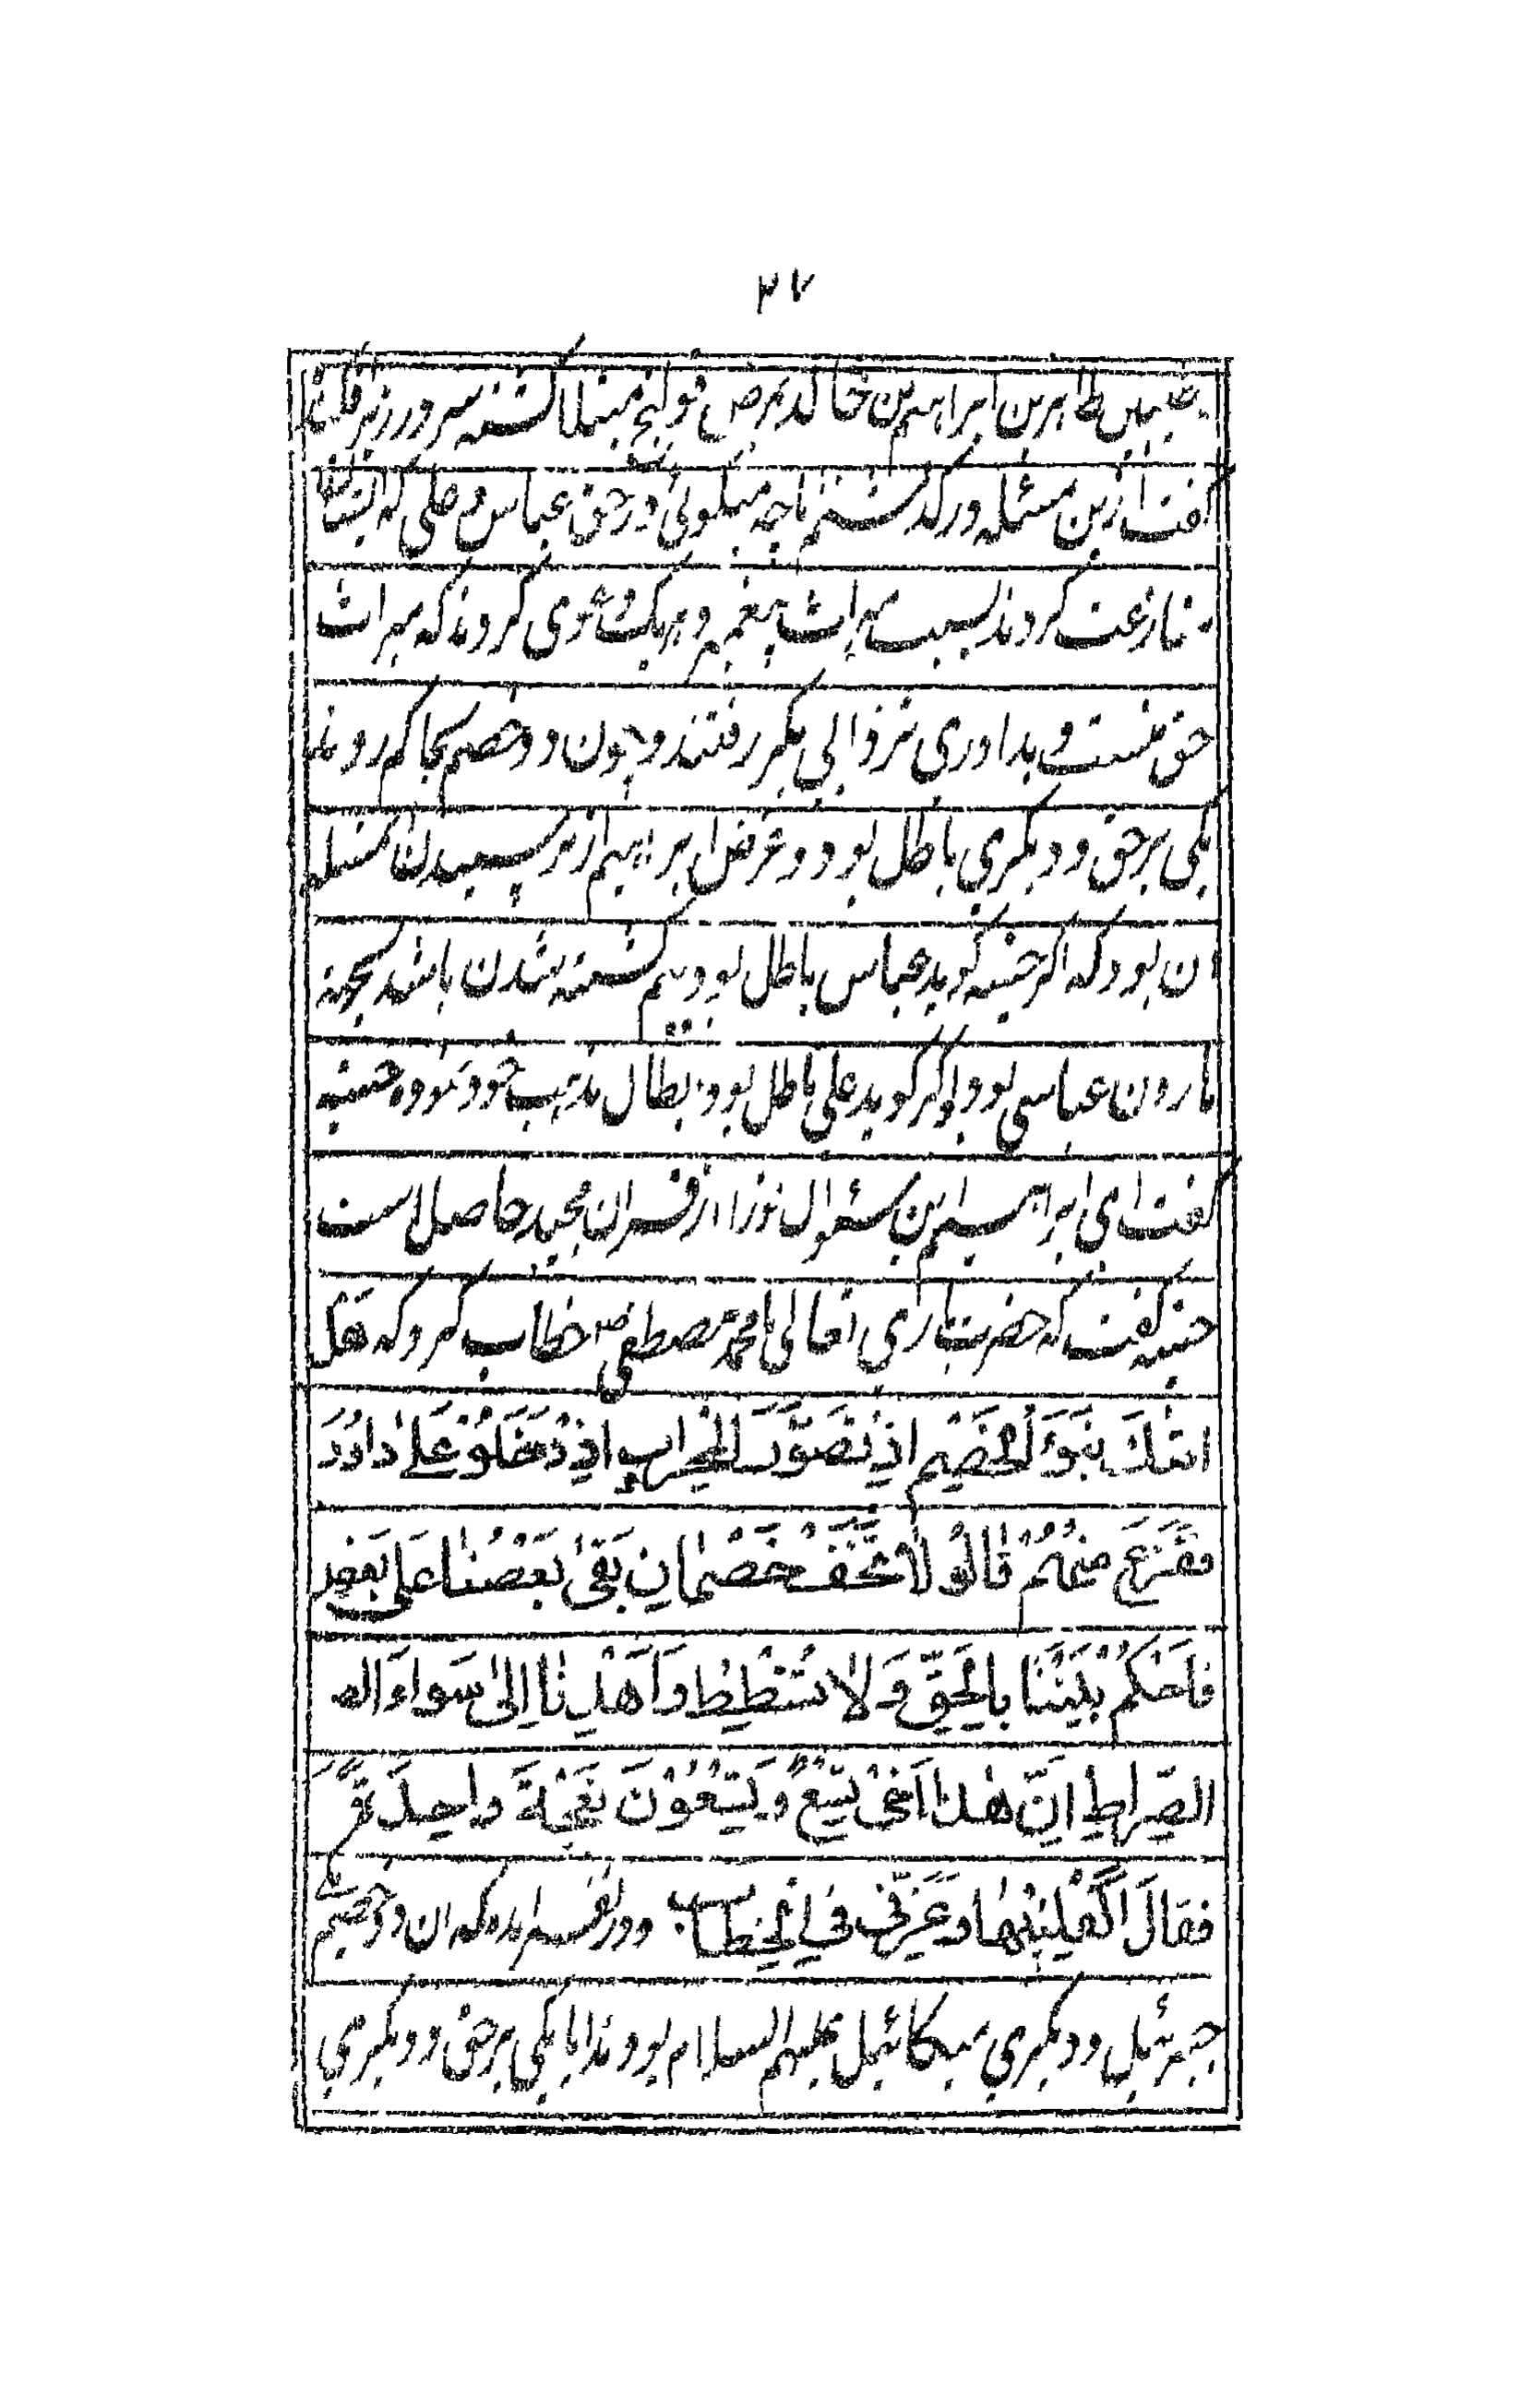 ۳۷
طاهر بن ابراهیم بن خالد بمرض قولنج مبتلا گشته سر در زیر
گفت ازین مسئله در گذشتم تا چه میگوئی در حق عباس و علی که ایشان
منازعت کردند بسبب میراث پیغمبر و هر یک دعوی کردند که میراث
حق منست و بداوری نزد ابی بکر رفتند و چون دو خصم بحاکم روند
یکی بر حق و دیگری باطل بود و غرض ابراهیم از پرسیدن این مسئله
ان بود که اگر حسنیه گوید عباس باطل بود بیم کشته شدن باشد بجهة
هارون عباسی بود و اگر گوید علی باطل بود ابطال مذهب خود نموده حسنیه
گفت ای ابراهیم این سئوال تو را از قران مجید حاصل است
حسنیه گفت که حضرت باری تعالی با محمد مصطفی ص خطاب کرد که هَل
اتٰیكَ نَبَؤُ الْخَصْمِ اذْ تَسَوَّرُ الْمِحْرابِ اذْ دَخَلُوْ عَلیٰ داوُدَ
فَفَزِعَ مِنْهُمْ قالُوْ لاٰ تَخَفْ خَصْمٰانِ بَغیٰ بَعْضُنٰا عَلیٰ بَعْضٍ
فَاحْكُمْ بَیْنَنٰا بِالْحَقِّ وَ لاٰ تُشْطِطْ وَاَهْدِ نٰا اِلیٰ سَواءَ الص
الصِّراطِ اِنَّ هٰذا اَخیْ تِسْعٌ وَ تِسْعُوْنَ نَعْجَةَ واحِدَةٌ
فَقالَ اَكْفِلْنِیْهٰا وَ عَزَّنی فیِ الْخِطابِ و در تفسیر امده که ان دو خصم یکی
جبرئیل و دیگری میکائیل علیهم السلام بودند ایا یکی بر حق و دیگری